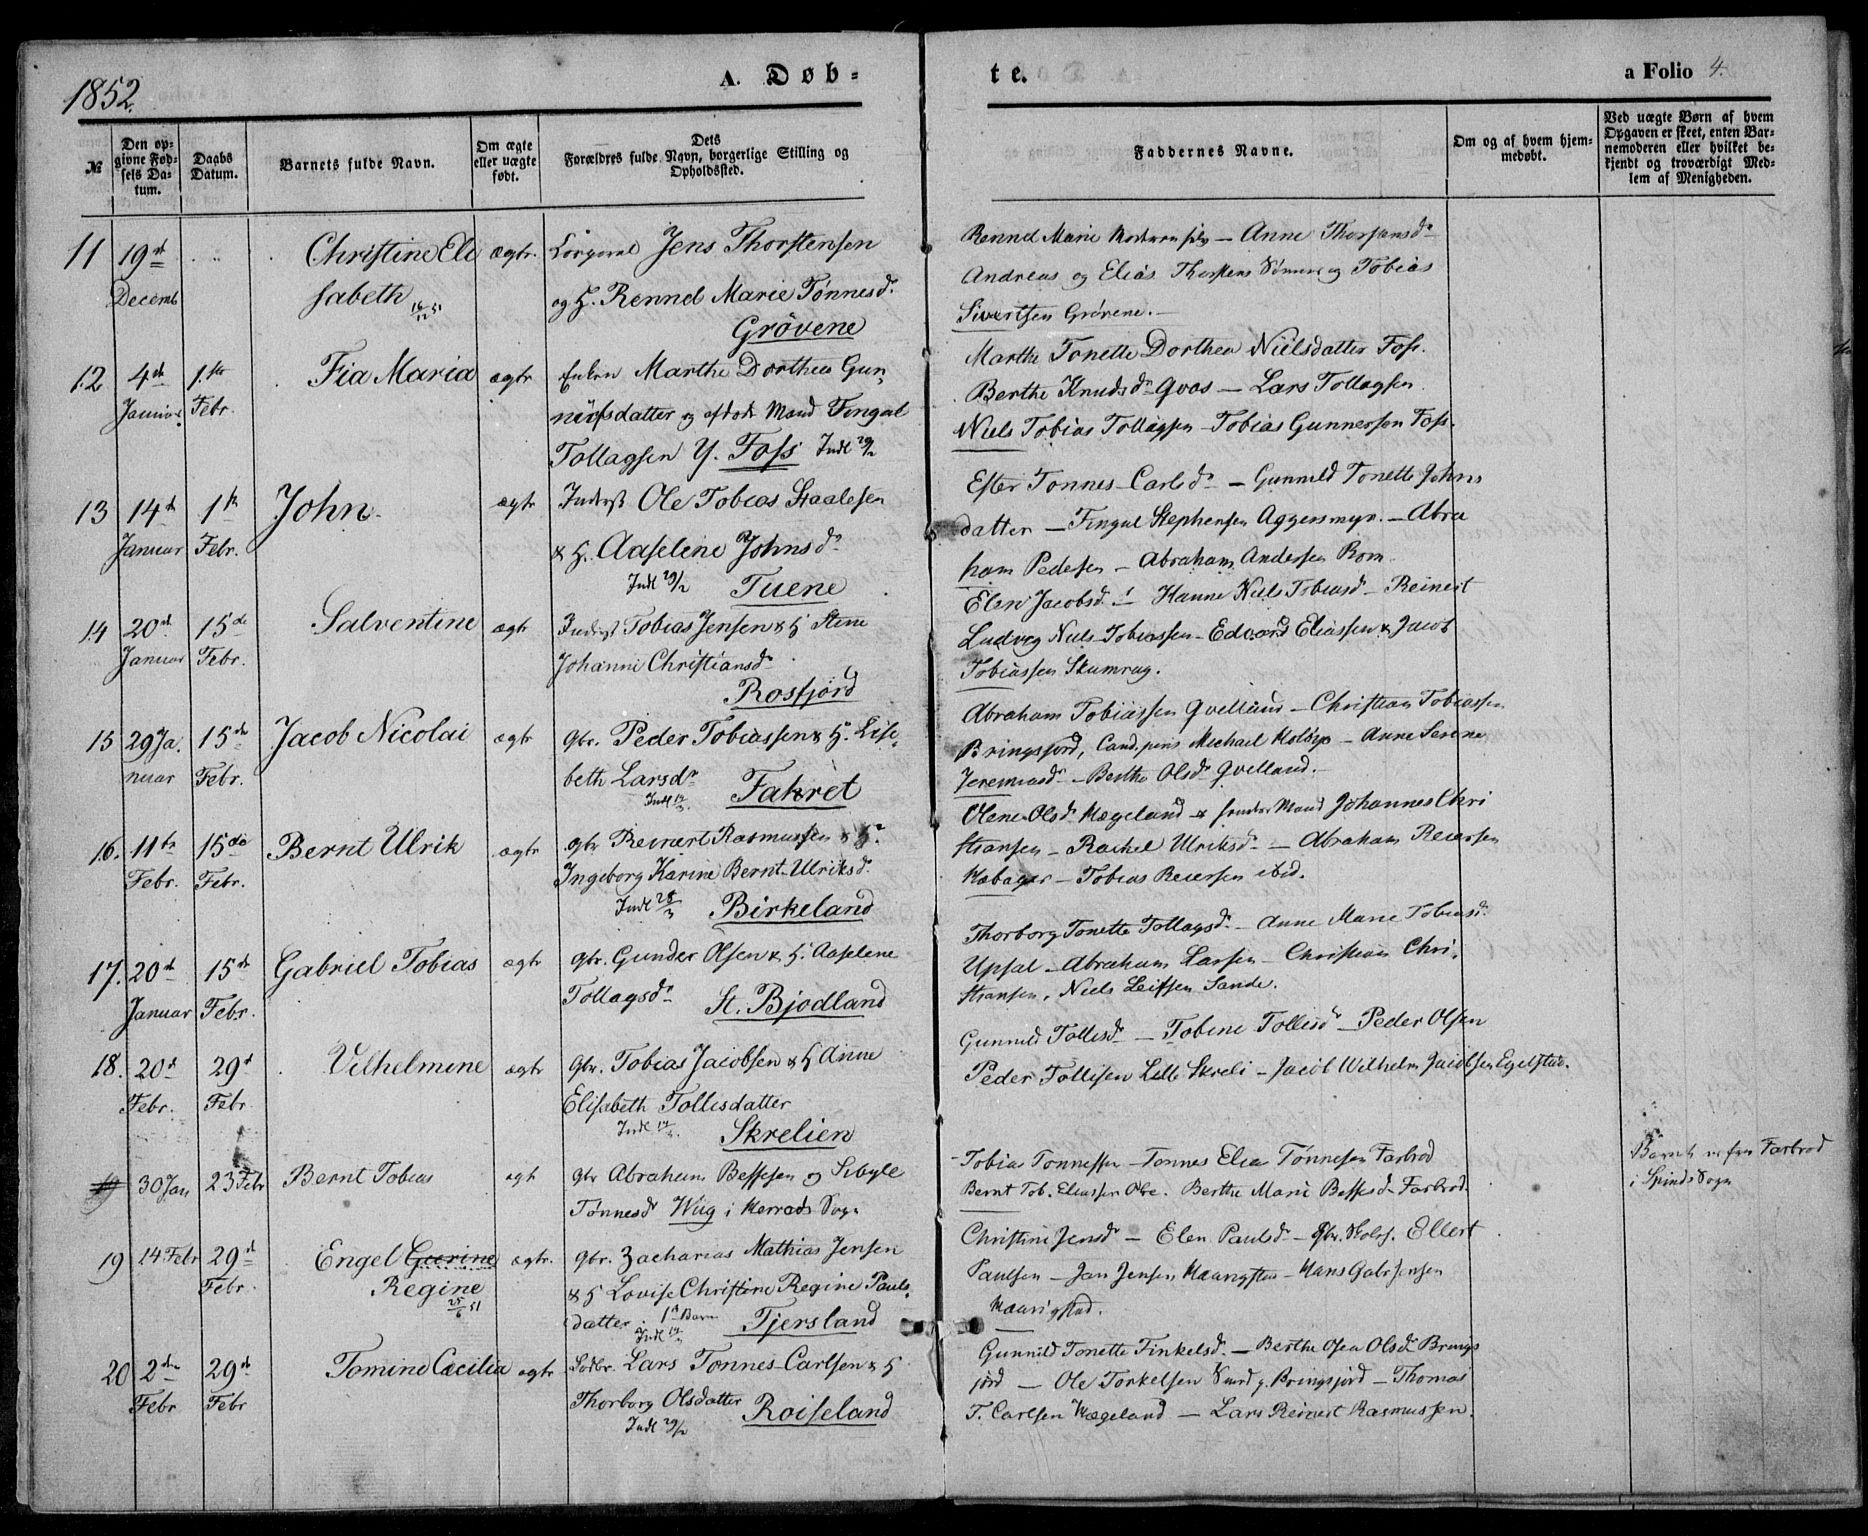 1852.
A. Døb-
te.
a Folio 4.
№
Den op-
givne Fød-
sels Da-
tum.
Daabs
Datum.
Barnets fulde Navn.
Om ægte
eller uægte
født.
Dets
Forældres fulde Navn, borgerlige Stilling og
Opholdssted.
Faddernes Navne.
Om og af hvem hjem-
medøbt.
Ved uægte Børn af hvem
Opgaven er skeet, enten Bar-
nemoderen eller hvilket be-
kjendt og troværdigt Med-
lem af Menigheden.
11 19de Decemb
Christine Eli
sabeth
ægte
Jens Thorstensen
og H. Rennel Marie Tønnesd.
Grövene
Rennel Marie — Anne Thorsensdr
Andreas og Elias Thorstens Sönner og Tobias
Sivertsen Grövene.
12 4de Januar 1ste Febr.
Fia Maria
ægte
Enken Marthe Dorthea Gun-
nersdatter og afdøde Mand Fingal
Tollagsen Y. Foss Indl 29/2
Marthe Tonette Dorthea Nielsdatter Foss.
Berthe Knudsdr Qvos — Lars Tollagsen
Niels Tobias Tollagsen - Tobias Gunnersen Foss.
13 14de Januar 1ste Febr.
John
ægte
Inderst Ole Tobias Staalesen
& H. Aaselene Johnsdr
Indl 29/2 Tuene
Ester Tonnes-Carlsdr — Gunnild Tonette Johns
datter — Fingal Stephensen Aggersmyr. — Abra
ham Pedersen — Abraham Andersen Rom.
14 20de Januar 15de Febr.
Salventine
ægte
Inderst Tobias Jensen & H Stine
Johanne Christiansdr
Rosfjord
Elen Jacobsd. — Hanne Niels Tobiasd — Reinert
Ludvig Niels Tobiassen - Edvard Eliassen & Jacob
Tobiassen Skumrag.
15 29 Ja. nuar 15de Febr.
Jacob Nicolai
ægte
Gbr. Peder Tobiassen & H. Lise-
beth Larsdr
Fahret
Abraham Tobiassen Qvelland — Christian Tobiassen
Bringsjord, Michael — Anne Serene
Jeremiasdr — Berthe Olsdr Qvelland.
16. 11te Febr. 15de Febr.
Bernt Ulrik
ægte
Gbr Reinert Rasmussen & H.
Ingeborg Karine Bernt-Ulriksd.
Indl 28/3 Birkeland
Olene Olsdr Hægeland & Mand Johannes Chri
stiansen — Rachel Ulriksdr — Abraham Reiersen
— Tobias Reiersen ibid.
17. 20de Januar 15de Febr.
Gabriel Tobias
ægte
Gbr. Gunder Olsen & H. Aaselene
Tollagsdr St. Bjodland
Thorborg Tonette Tollagsdr — Anne Marie Tobiasd.
Upsal — Abraham Larsen — Christian Chri-
stiansen, Niels Leifsen Sande.
18. 20de Febr. 29de Febr
Vilhelmine
ægte
Gbr. Tobias Jacobsen & H Anne
Elisabeth Tollisdatter
Skrelien
Gunnild Tollisdr — Tobine Tollisdr — Peder Olsen
Peder Tollisen Lille Skreli — Jacob Wilhelm Jacobsen Egelstad.
19 30 Jan 23 Febr
Bernt Tobias
ægt
Gbr Abraham Bessesen og Sibyle
Tønnesdr Wiig i Herrads Sogn
Tobias Tonnessen — Tonnes Elia Tønnesen Farbrod
Bernt Tob. Eliassen Berthe Marie Bessesd Farbrod.
Barnet er fra Farbrod
i Spinds Sogn
19 14 Febr 29de Febr.
Engel Geerine
Regine
ægte.
Gbr. Zacharias Mathias Jensen
& H Lovise Christine Regine Pauls-
datter. 1ste Barn
Tjersland
Christine Jensdr — Elen Paulsdr — Ellert
Paulsen — Jan Jensen — Hans Gabr Jensen
20 2den Febr 29de Febr
Tomine Cæcilia
ægte
Lars Tonnes-Carlsen & H
Thorborg Olsdatter
Indl 29/2 Roiseland
Gunnild Tonette Finkelsd. — Berthe Olsdr Brings
jord — Ole Torkelsen Bringsjord — Thomas
T. Carlsen Hægeland — Lars Reinert Rasmussen.